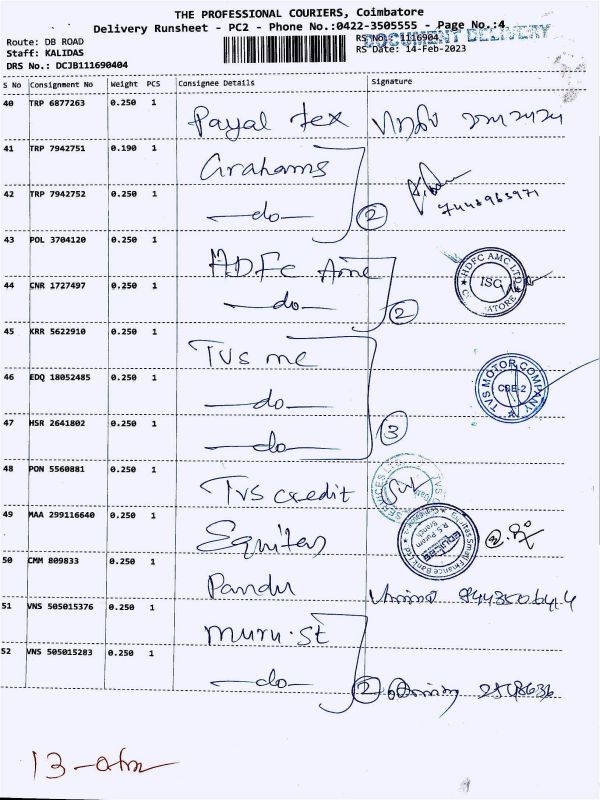 THE PROFESSIONAL COURIERS, Coimbatore
Delivery Runsheet - PC2 - Phone No.:0422-3505555 - Page No.:4
DOCUMENT DELIVERY
Route: DB ROAD
RS No.: 1116904
Staff: KALIDAS
RS Date: 14-Feb-2023
DRS No.: DCJB111690404
S No Consignment No Weight PCS Consignee Details Signature
40 TRP 6877263 0.250 1 Payal Tex
41 TRP 7942751 0.190 1 Grahams
42 TRP 7942752 0.250 1 -do- 2
7448965971
43 POL 3704120 0.250 1 HDFC Amc
HDFC AMC LTD
ISC
44 CNR 1727497 0.250 1 -do- 2
45 KRR 5622910 0.250 1 TVS mc
TVS MOTOR COMPANY
CBE-2
46 EDQ 18052485 0.250 1 -do-
47 HSR 2641802 0.250 1 -do- 3
48 PON 5560881 0.250 1 TVS credit
49 MAA 299116640 0.250 1 Equitas
Equitas Small Finance Bank Ltd
R.S. Puram
Branch
50 CMM 809833 0.250 1 Pandu
51 VNS 505015376 0.250 1 muru.st
52 VNS 505015283 0.250 1 -do- 2